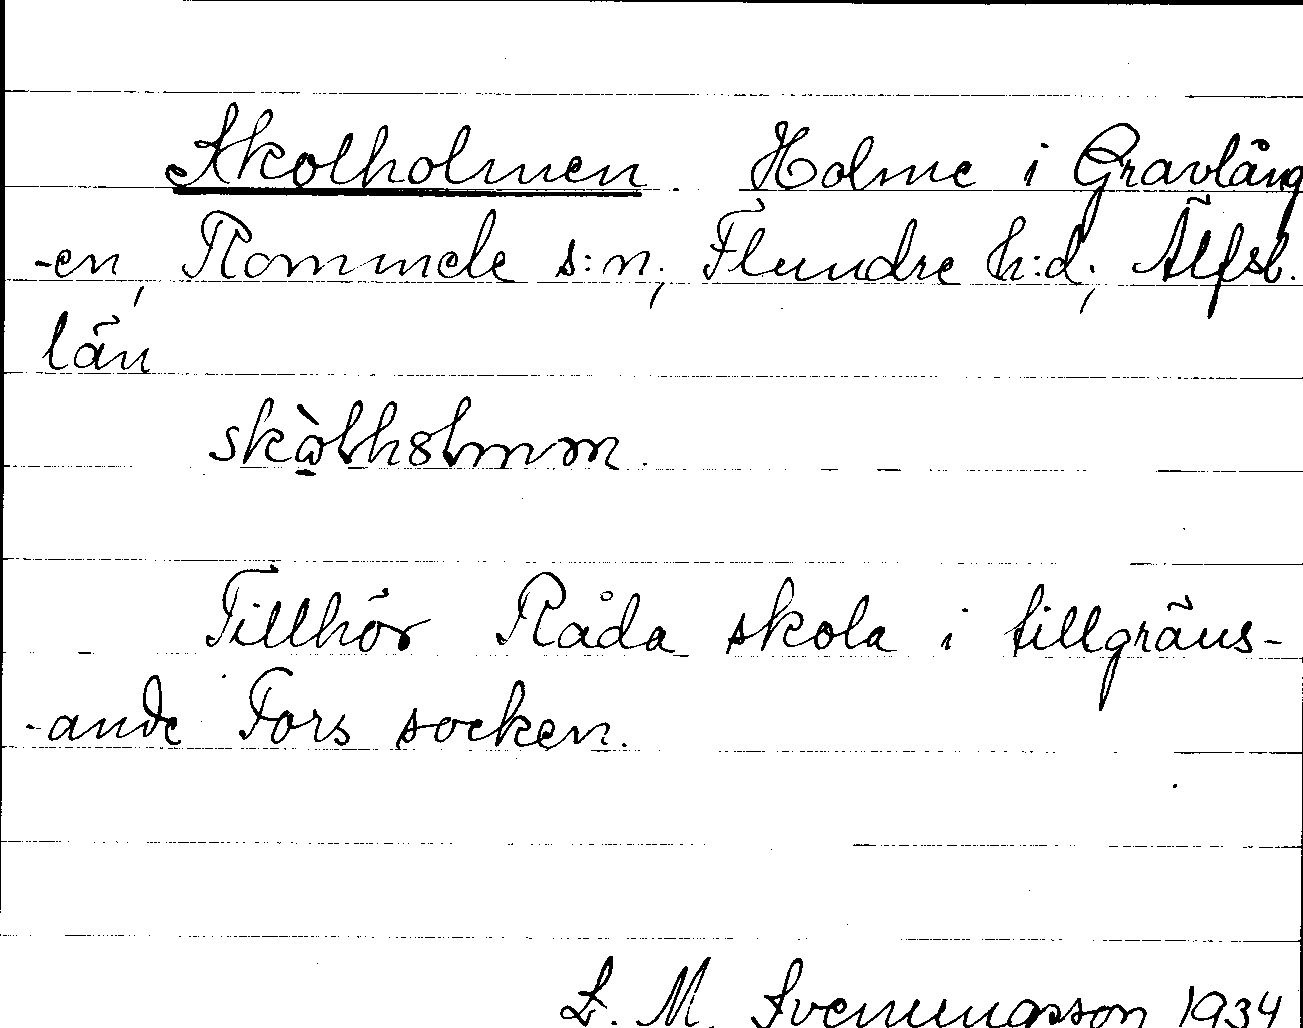 Skolholmen. Holme i Gravlång
-en, Rommele s:n, Flundre h:d, Älfsb.
län
Tillhör Råda skola i tillgräns-
-ande Fors socken.
L. M. Svenungsson 1934